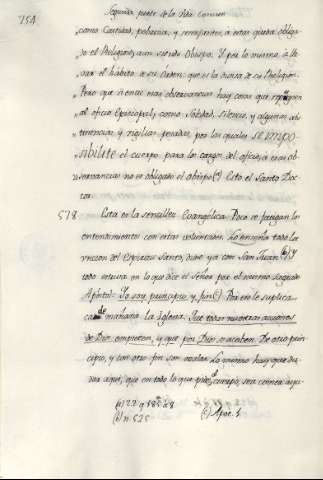 254
Segunda parte de la Vida Comun
„como Castidad, pobreza, y semejantes, à estas queda obliga-
do el Religioso, aun siendo Obispo. Y por lo mismo, a lle-
var el hábito de su Orden; que es la divisa de su Religion.
Pero que si en las mas observancias hay cosas que repugnen
al oficio Episcopal, como Soledad, Silencio, y algunas abs-
tinencias, y vigilias pesadas, por las quales se impo-
sibilite el cuerpo para las cargas del oficio, à estas ob-
servancias no es obligado el obispo (a) Esto el Santo Doc-
tor.
578 Esta es la sencillez Evangelica. Poco se fatigan los
entendimientos con estas voluntades. Lo enseña todo la
uncion del Espiritu Santo, dixe ya con San Juan (b) Y
todo estriva en lo que dice el Señor por el mismo sagrado
Apostol: Yo soy principio, y fin (c) Por eso le suplica
cada mañana la Iglesia. Que todas nuestras acciones
de Dios empiezen, y que por Dios se acaben. De otro prin-
cipio, y con otro fin son malas. Lo mismo hay que de-
cir aqui, que en todo lo que pide el cuerpo, sea comer, aqui
(a) 22. q. 185. a. 8
(b) n. 525 (c) Apoc. 1